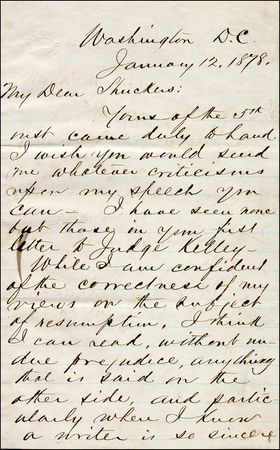 Washington D.C.
January 12, 1878.
My Dear Shuckers:
Yours of the 5th
inst came duly to hand
I wish you would send
me whatever criticisms
upon my speech you
can — I have seen none
but those in your first
letter to Judge Kelley —
While I am confident
of the correctness of my
views on the subject
of resumption, I think
I can read, without un-
due prejudice, anything
that is said on the
other side, and partic-
ularly when I know
a writer is so sincere